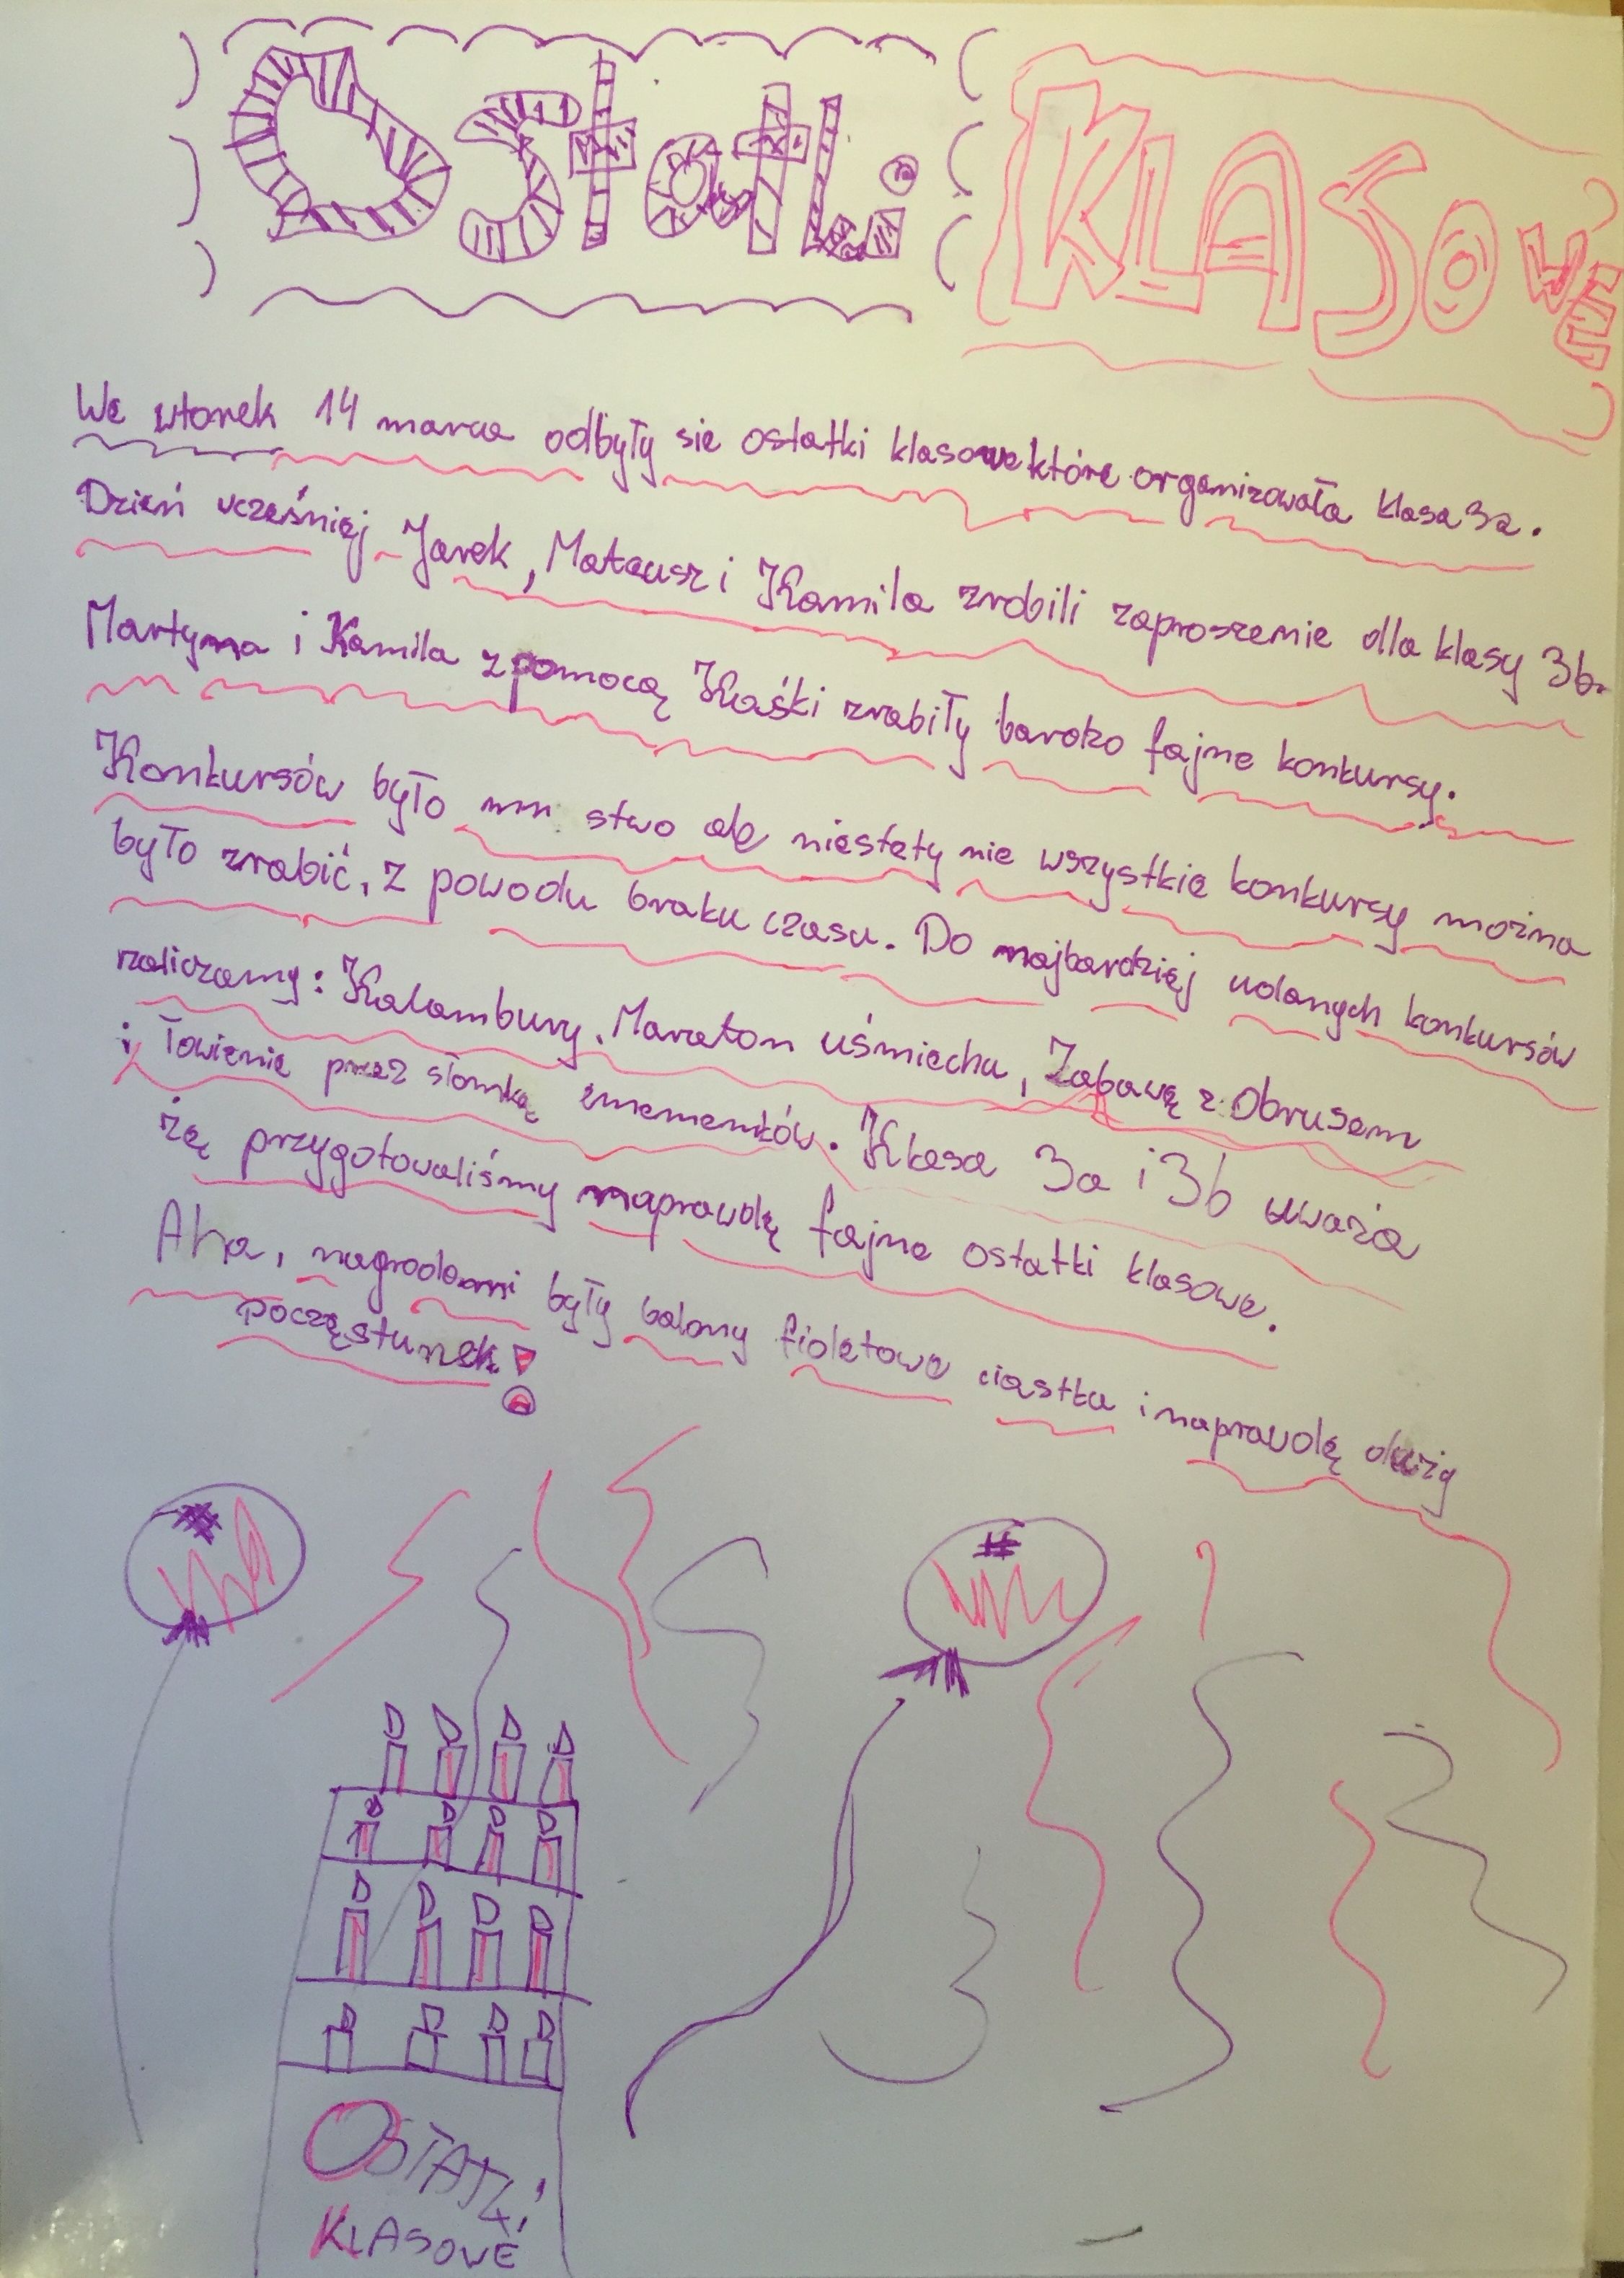 Ostatki KLASOWE
We wtorek 14 marca odbyły sie ostatki klasowe które organizowała klasa 3a.
Dzień wcześniej Jarek, Mateusz i Kamila zrobili zaproszenie dla klasy 3b.
Martyna i Kamila z pomocą Kaśki zrobiły bardzo fajne konkursy.
Konkursów było mnustwo ale niestety nie wszystkie konkursy można
było zrobić, z powodu braku czasu. Do najbardziej udanych konkursów
zaliczamy: Kalambury, Maraton uśmiechu, Zabawę z Obrusem
i łowienie przez słomkę . Klasa 3a i 3b uważa
żę przygotowaliśmy naprawdę fajne ostatki klasowe.
Aha, nagrodami były balony fioletowe ciastka i naprawdę duży
poczęstunek!
OSTATKI
KLASOWE